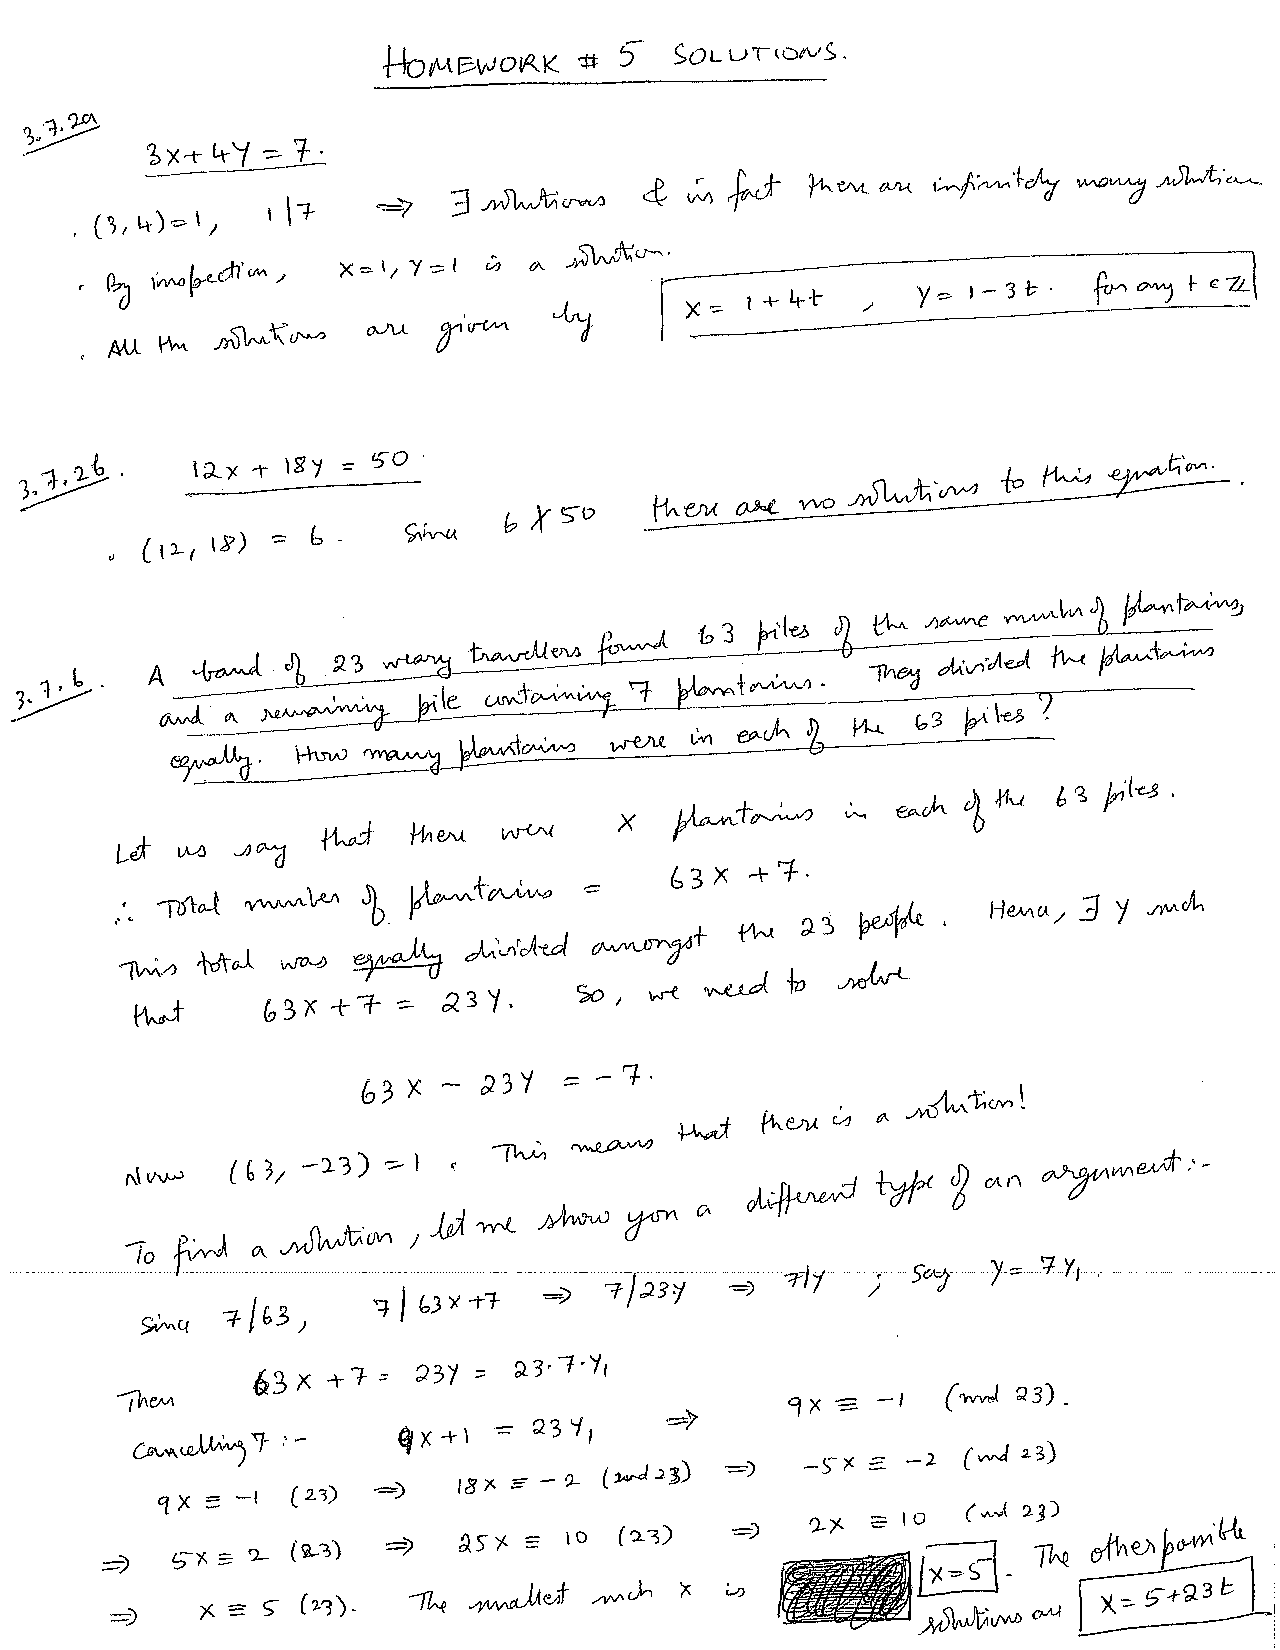 HOMEWORK # 5 SOLUTIONS.
3.7.2a
3x + 4y = 7.
. (3,4)=1, 1|7 ⇒ ∃ solutions & in fact there are infinitely many solution
. By inspection, x=1, y=1 is a solution.
. All the solutions are given by x = 1+4t , y = 1-3t. for any t ∈ ℤ
3.7.2b. 12x + 18y = 50.
. (12, 18) = 6. Since 6 ∤ 50 there are no solutions to this equation.
3.7.6. A band of 23 weary travellers found 63 piles of the same number of plantains,
and a remaining pile containing 7 plantains. They divided the plantains
equally. How many plantains were in each of the 63 piles?
Let us say that there were x plantains in each of the 63 piles.
∴ Total number of plantains = 63x + 7.
This total was equally divided amongst the 23 people. Hence, ∃ y such
that 63x + 7 = 23y. So, we need to solve
63x - 23y = -7.
Now (63, -23) = 1. This means that there is a solution!
To find a solution, let me show you a different type of an argument:-
Since 7|63, 7|63x+7 ⇒ 7|23y ⇒ 7|y ; Say y = 7y₁.
Then 63x + 7 = 23y = 23·7·y₁
Cancelling 7 :- 9x+1 = 23y₁ ⇒ 9x ≡ -1 (mod 23).
9x ≡ -1 (23) ⇒ 18x ≡ -2 (mod 23) ⇒ -5x ≡ -2 (mod 23)
⇒ 5x ≡ 2 (23) ⇒ 25x ≡ 10 (23) ⇒ 2x ≡ 10 (mod 23)
⇒ x ≡ 5 (23). The smallest such x is x=5. The other possible
solutions are x = 5+23t